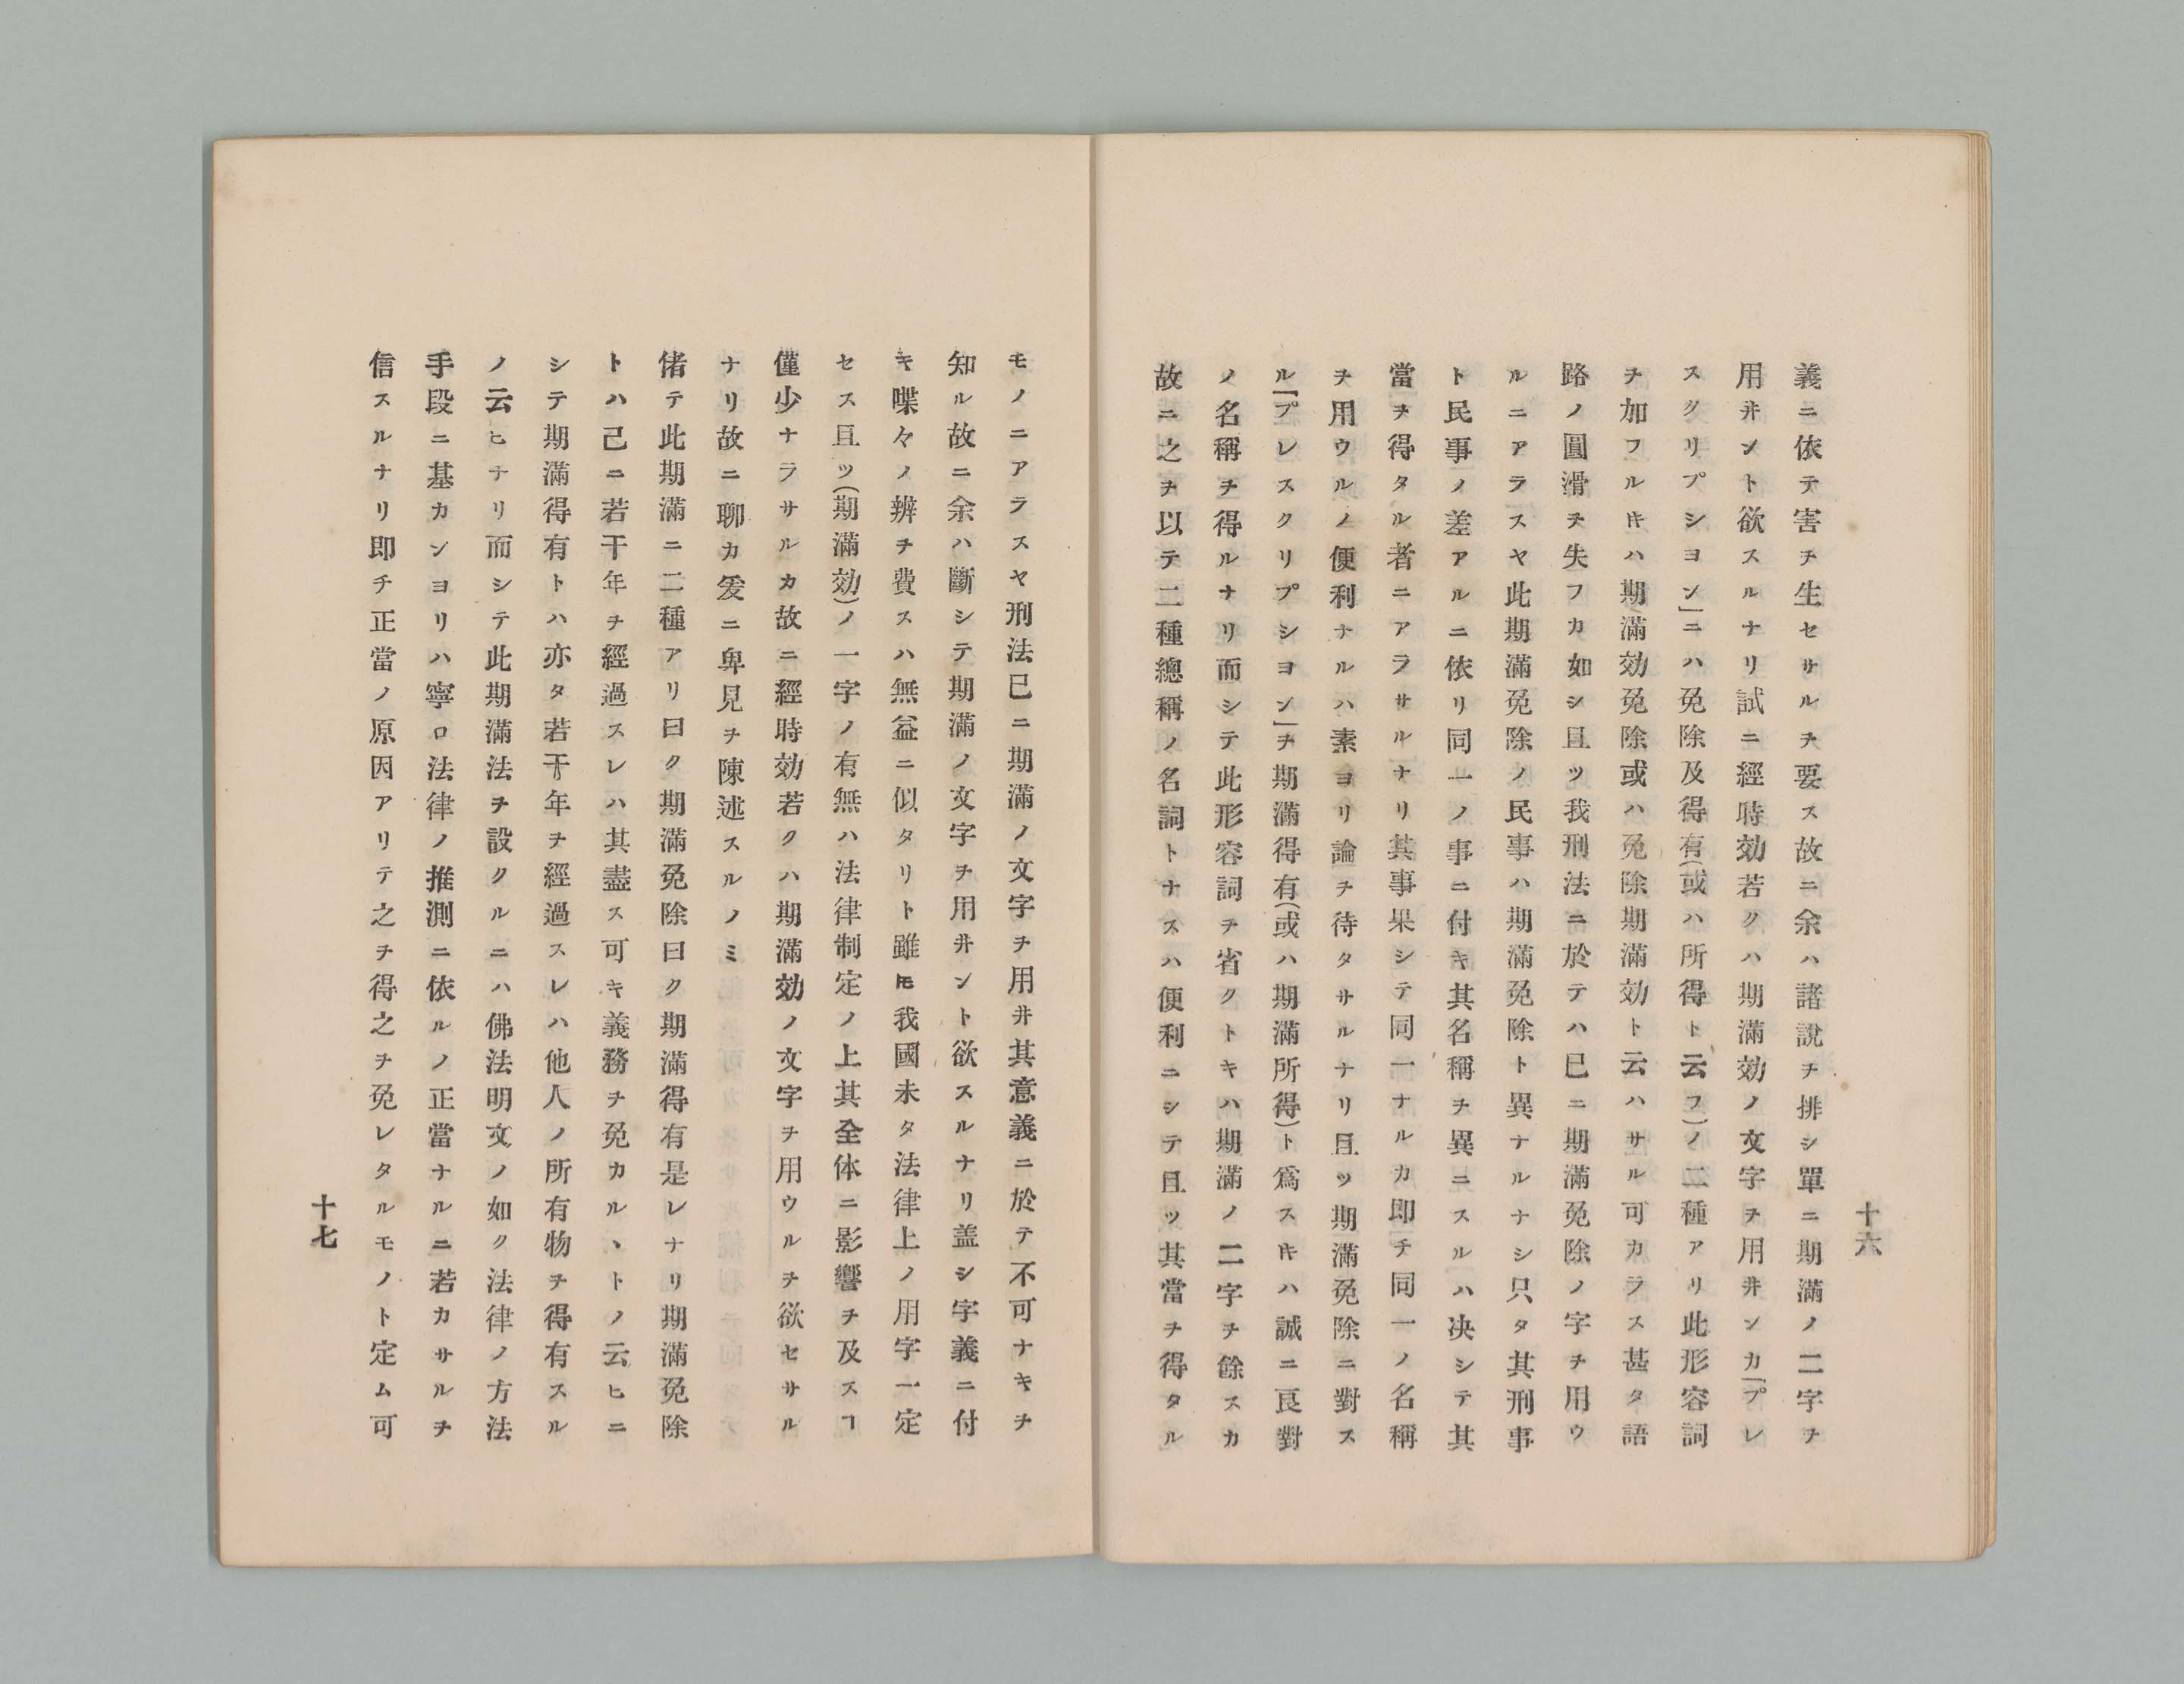 十六
義ニ依テ害ヲ生セサルヲ要ス故ニ余ハ諸說ヲ排シ單ニ期滿ノ二字ヲ
用井ント欲スルナリ試ニ經時効若クハ期滿効ノ文字ヲ用井ンカ「プレ
スクリプシヨン」ニハ免除及得有(或ハ所得ト云フ)ノ二種アリ此形容詞
ヲ加フルキハ期滿効免除或ハ免除期滿効ト云ハサル可カラス甚タ語
路ノ圓滑ヲ失フカ如シ且ツ我刑法ニ於テハ巳ニ期滿免除ノ字ヲ用ウ
ルニアラスヤ此期滿免除ノ民事ハ期滿免除ト異ナルナシ只タ其刑事
ト民事ノ差アルニ依リ同一ノ事ニ付キ其名稱ヲ異ニスルハ决シテ其
當ヲ得タル者ニアラサルナリ其事果シテ同一ナルカ即チ同一ノ名稱
ヲ用ウルノ便利ナルハ素ヨリ論ヲ待タサルナリ且ツ期滿免除ニ對ス
ル「プレスクリプシヨン」ヲ期滿得有(或ハ期滿所得)ト爲スキハ誠ニ良對
ノ名稱ヲ得ルナリ而シテ此形容詞ヲ省クトキハ期滿ノ二字ヲ餘スカ
故ニ之ヲ以テ二種總稱ノ名詞トナスハ便利ニシテ且ツ其當ヲ得タル
モノニアラスヤ刑法巳ニ期滿ノ文字ヲ用井其意義ニ於テ不可ナキヲ
知ル故ニ余ハ斷シテ期滿ノ文字ヲ用井ント欲スルナリ盖シ字義ニ付
キ喋々ノ辨ヲ費スハ無益ニ似タリト雖𪜈我國未タ法律上ノ用字一定
セス且ツ(期滿効)ノ一字ノ有無ハ法律制定ノ上其全体ニ影響ヲ及スヿ
僅少ナラサルカ故ニ經時効若クハ期滿効ノ文字ヲ用ウルヲ欲セサル
ナリ故ニ聊カ爰ニ卑見ヲ陳述スルノミ
偖テ此期滿ニ二種アリ曰ク期滿免除曰ク期滿得有是レナリ期滿免除
トハ己ニ若干年ヲ經過スレハ其盡ス可キ義務ヲ免カルヽトノ云ヒニ
シテ期滿得有トハ亦タ若干年ヲ經過スレハ他人ノ所有物ヲ得有スル
ノ云ヒナリ而シテ此期滿法ヲ設クルニハ佛法明文ノ如ク法律ノ方法
手段ニ基カンヨリハ寧ロ法律ノ推測ニ依ルノ正當ナルニ若カサルヲ
信スルナリ即チ正當ノ原因アリテ之ヲ得之ヲ免レタルモノト定ム可
十七